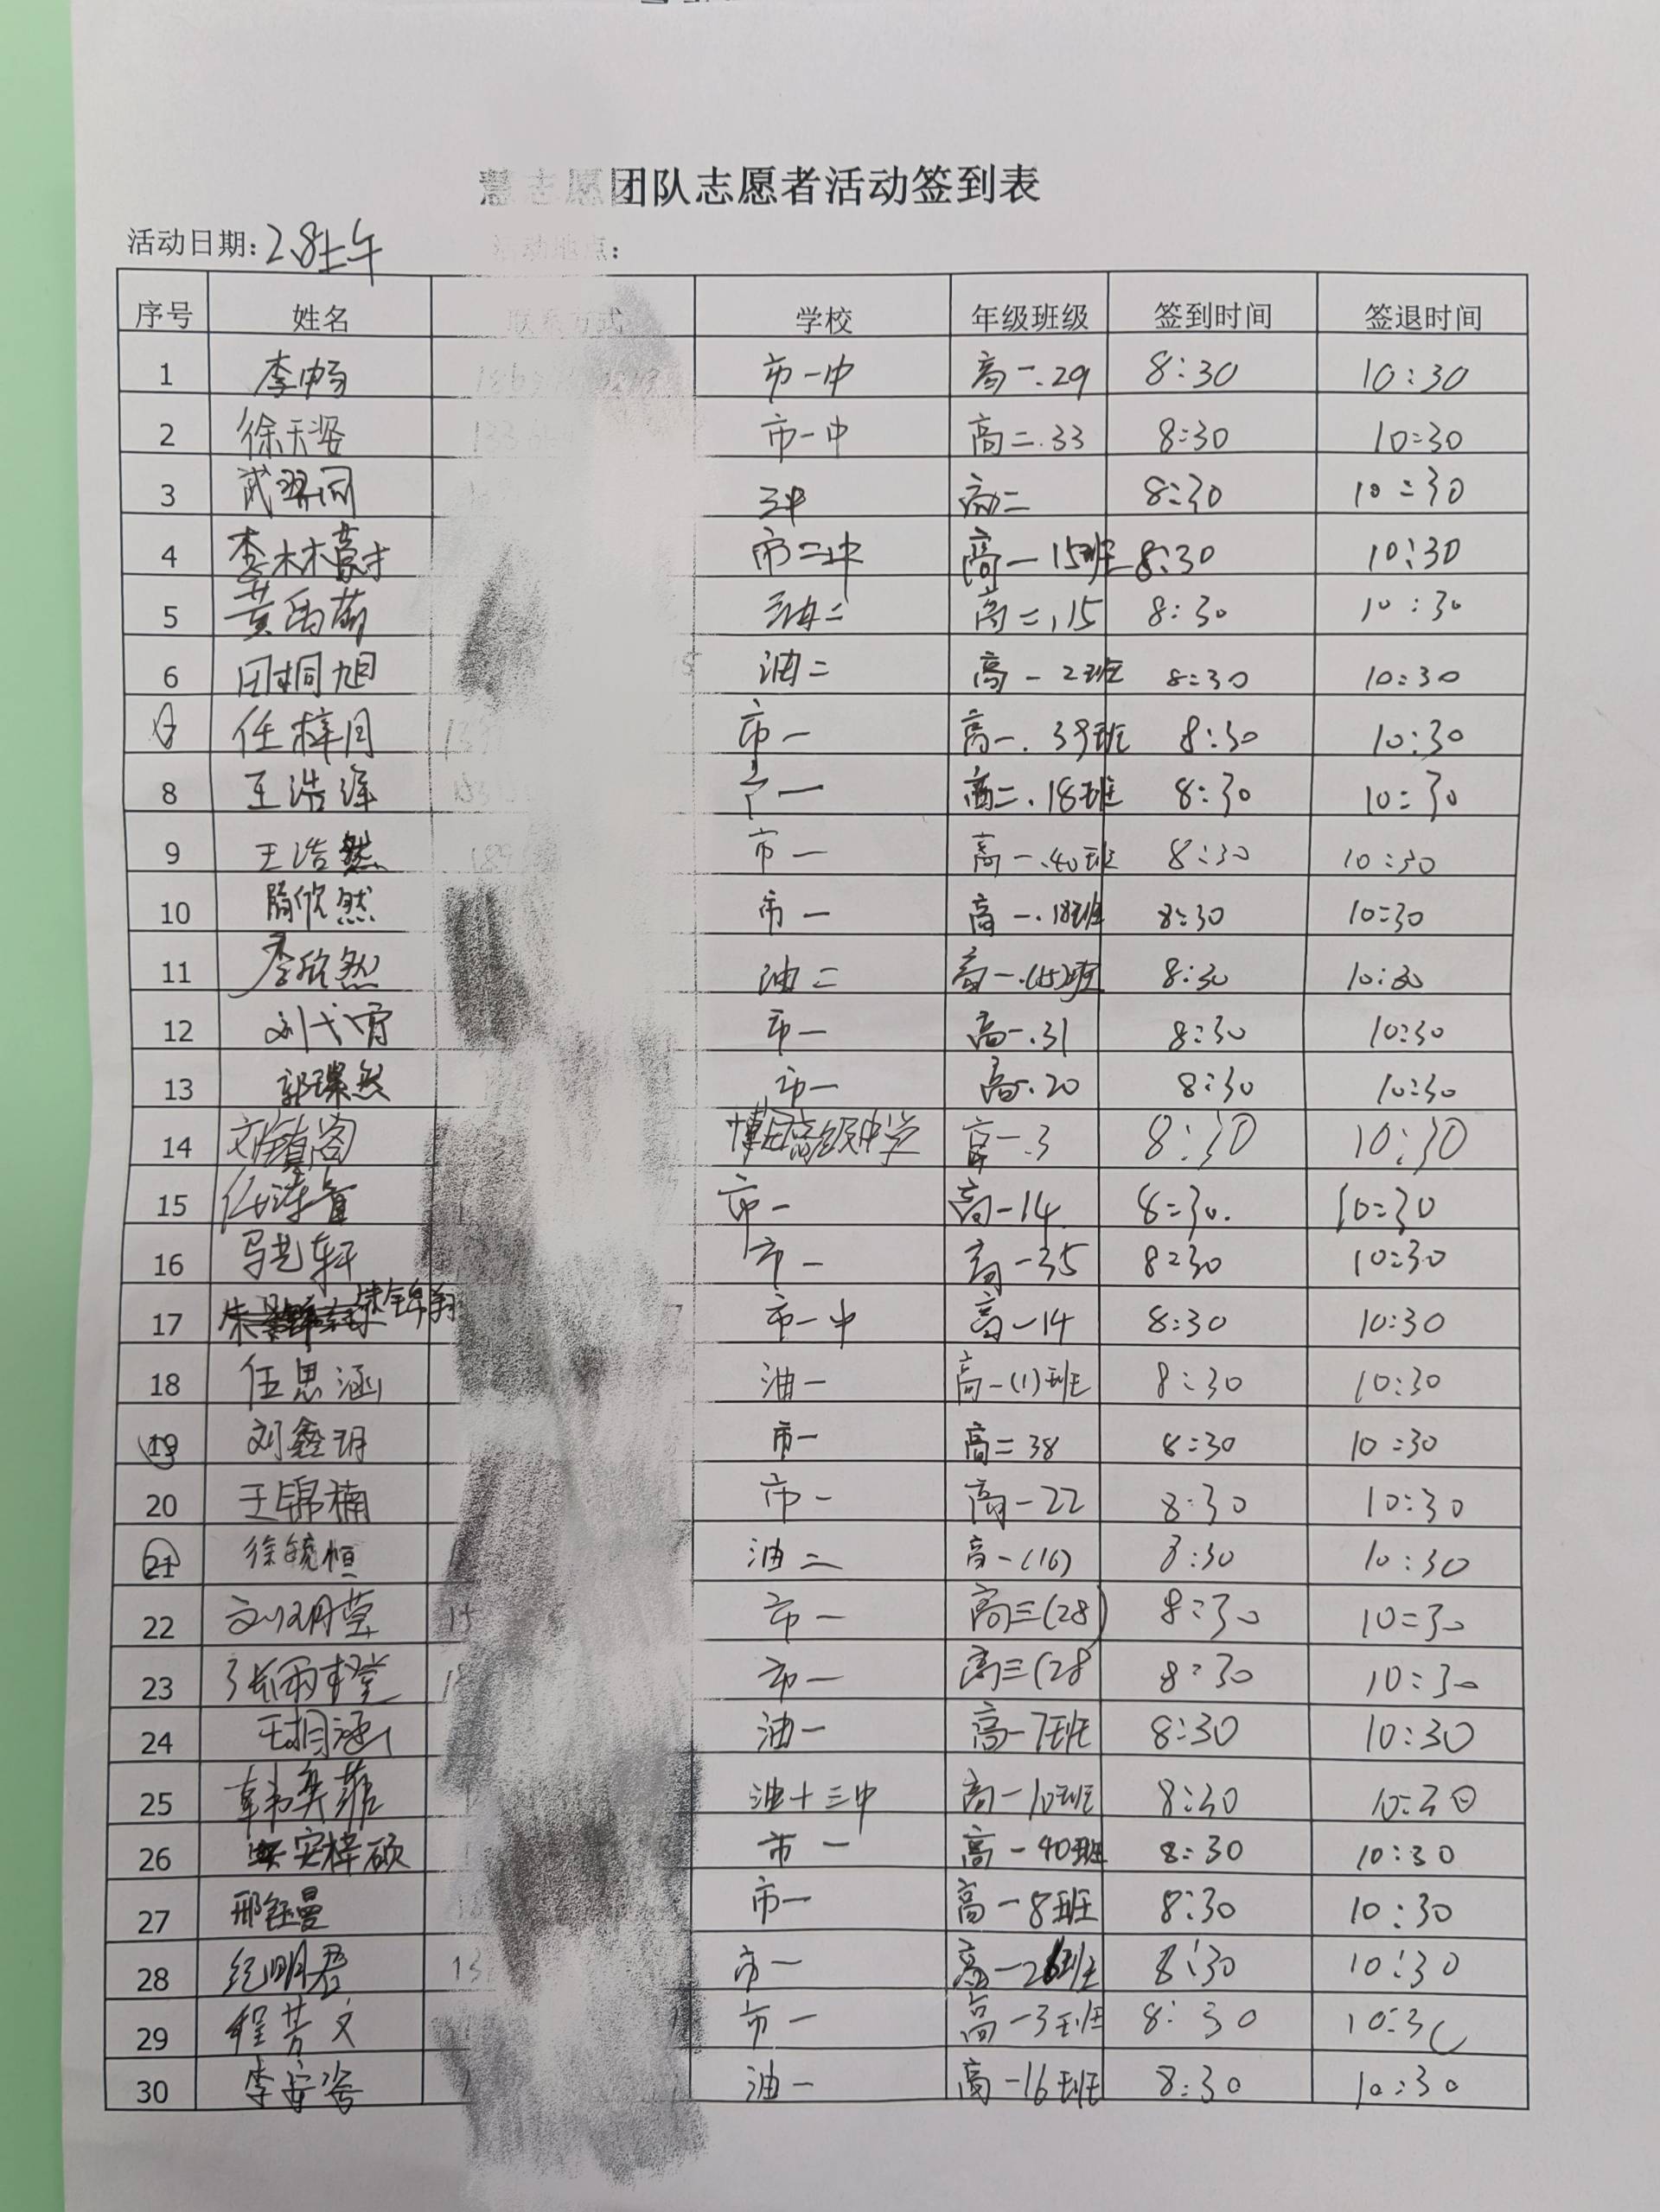 团队志愿者活动签到表
活动日期：2.8上午 活动地点：
序号 姓名 联系方式 学校 年级班级 签到时间 签退时间
1 李畅 市一中 高一.29 8:30 10:30
2 徐天姿 市一中 高二.33 8:30 10:30
3 高二 8:30 10:30
4 市二中 高一15班 8:30 10:30
5 黄禹萌 油二 高二.15 8:30 10:30
6 田桐旭 油二 高一2班 8:30 10:30
7 任梓月 市一 高一.39班 8:30 10:30
8 王浩泽 市一 高二.18班 8:30 10:30
9 王浩然 市一 高一.40班 8:30 10:30
10 欣然 市一 高一.18班 8:30 10:30
11 李欣然 油二 高一.(15)班 8:30 10:30
12 市一 高一.31 8:30 10:30
13 郭璨然 市一 高一.20 8:30 10:30
14 高级中学 高一.3 8:30 10:30
15 市一 高一14 8:30. 10:30
16 马艺轩 市一 高一35 8:30 10:30
17 朱锦翔 市一中 高一14 8:30 10:30
18 任思涵 油一 高一(1)班 8:30 10:30
19 刘鑫玥 市一 高二38 8:30 10:30
20 王锦楠 市一 高一22 8:30 10:30
21 徐毓恒 油二 高一(16) 8:30 10:30
22 市一 高三(28) 8:30 10:30
23 张雨 市一 高三(28 8:30 10:30
24 王相涵 油一 高一7班 8:30 10:30
25 韩奕菲 油十三中 高一10班 8:30 10:30
26 安梓硕 市一 高一40班 8:30 10:30
27 邢钰曼 市一 高一8班 8:30 10:30
28 纪明君 市一 高一26班 8:30 10:30
29 程芳文 市一 高一3班 8:30 10:30
30 李安姿 油一 高一16班 8:30 10:30